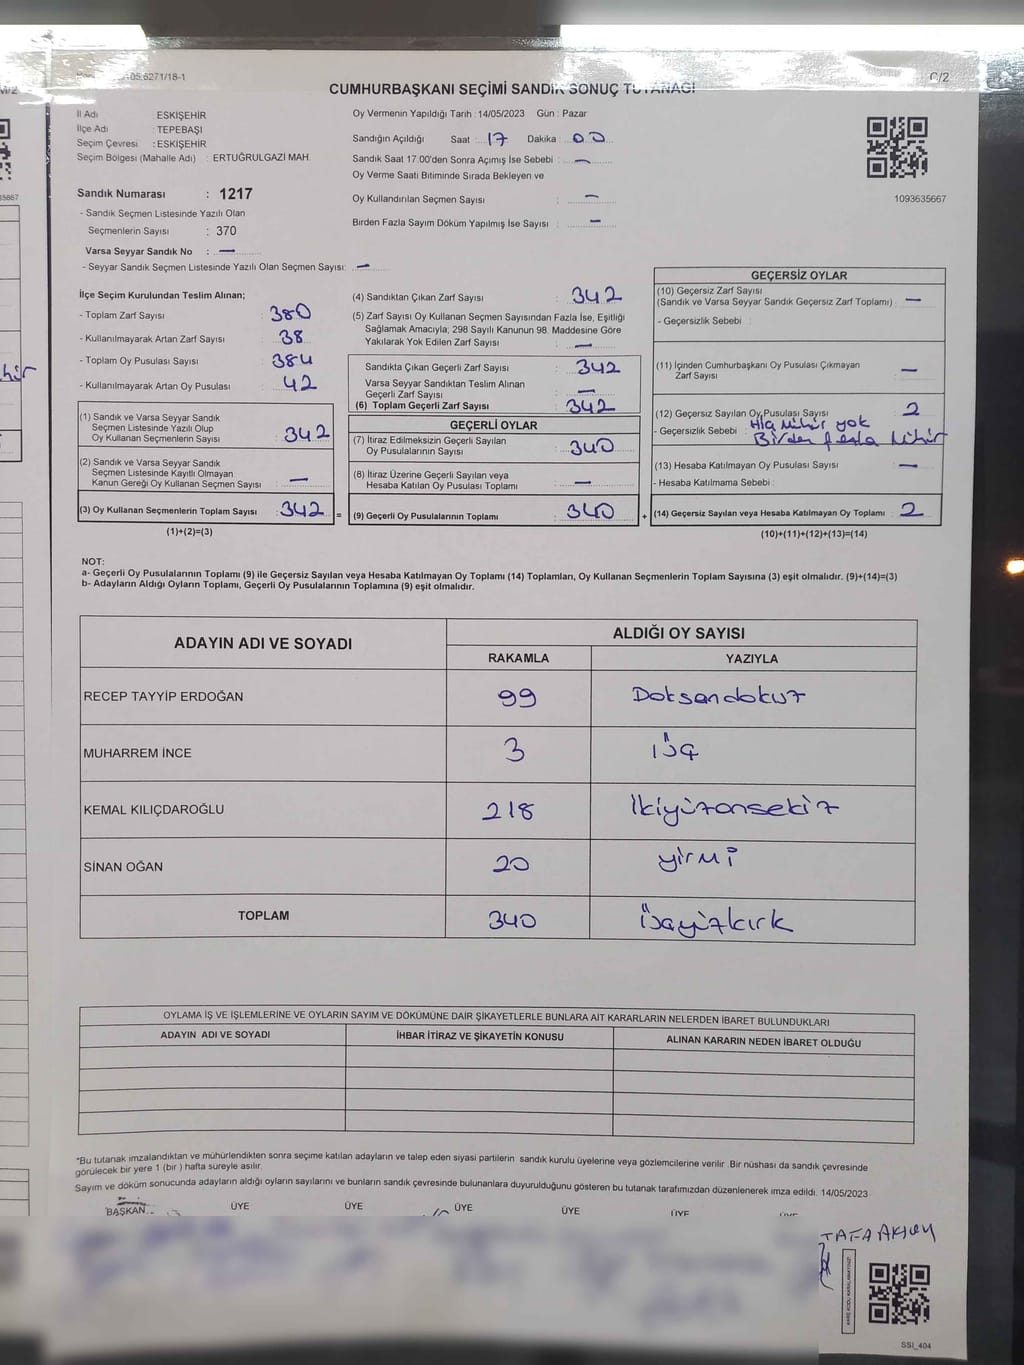 05.6271/18-1
C/2
CUMHURBAŞKANI SEÇİMİ SANDIK SONUÇ TUTANAĞI
İl Adı ESKİŞEHİR
İlçe Adı : TEPEBAŞI
Seçim Çevresi : ESKİŞEHİR
Seçim Bölgesi (Mahalle Adı) : ERTUĞRULGAZİ MAH.
Sandık Numarası : 1217
- Sandık Seçmen Listesinde Yazılı Olan
Seçmenlerin Sayısı : 370
Varsa Seyyar Sandık No : —
- Seyyar Sandık Seçmen Listesinde Yazılı Olan Seçmen Sayısı: —
Oy Vermenin Yapıldığı Tarih : 14/05/2023 Gün : Pazar
Sandığın Açıldığı Saat : 17 Dakika : 00
Sandık Saat 17.00'den Sonra Açımış İse Sebebi : —
Oy Verme Saati Bitiminde Sırada Bekleyen ve
Oy Kullandırılan Seçmen Sayısı : —
Birden Fazla Sayım Döküm Yapılmış İse Sayısı : —
1093635667
İlçe Seçim Kurulundan Teslim Alınan;
- Toplam Zarf Sayısı : 380
- Kullanılmayarak Artan Zarf Sayısı : 38
- Toplam Oy Pusulası Sayısı : 384
- Kullanılmayarak Artan Oy Pusulası : 42
(1) Sandık ve Varsa Seyyar Sandık
Seçmen Listesinde Yazılı Olup
Oy Kullanan Seçmenlerin Sayısı : 342
(2) Sandık ve Varsa Seyyar Sandık
Seçmen Listesinde Kayıtlı Olmayan
Kanun Gereği Oy Kullanan Seçmen Sayısı : —
(3) Oy Kullanan Seçmenlerin Toplam Sayısı : 342 =
(1)+(2)=(3)
(4) Sandıktan Çıkan Zarf Sayısı : 342
(5) Zarf Sayısı Oy Kullanan Seçmen Sayısından Fazla İse, Eşitliği
Sağlamak Amacıyla; 298 Sayılı Kanunun 98. Maddesine Göre
Yakılarak Yok Edilen Zarf Sayısı : —
Sandıkta Çıkan Geçerli Zarf Sayısı : 342
Varsa Seyyar Sandıktan Teslim Alınan
Geçerli Zarf Sayısı : —
(6) Toplam Geçerli Zarf Sayısı : 342
GEÇERLİ OYLAR
(7) İtiraz Edilmeksizin Geçerli Sayılan
Oy Pusulalarının Sayısı : 340
(8) İtiraz Üzerine Geçerli Sayılan veya
Hesaba Katılan Oy Pusulası Toplamı : —
(9) Geçerli Oy Pusulalarının Toplamı : 340 +
GEÇERSİZ OYLAR
(10) Geçersiz Zarf Sayısı
(Sandık ve Varsa Seyyar Sandık Geçersiz Zarf Toplamı) : —
- Geçersizlik Sebebi :
(11) İçinden Cumhurbaşkanı Oy Pusulası Çıkmayan
Zarf Sayısı : —
(12) Geçersiz Sayılan Oy Pusulası Sayısı : 2
- Geçersizlik Sebebi : Hiç Mühür yok
Birden fazla Mühür
(13) Hesaba Katılmayan Oy Pusulası Sayısı : —
- Hesaba Katılmama Sebebi :
(14) Geçersiz Sayılan veya Hesaba Katılmayan Oy Toplamı : 2
(10)+(11)+(12)+(13)=(14)
NOT:
a- Geçerli Oy Pusulalarının Toplamı (9) ile Geçersiz Sayılan veya Hesaba Katılmayan Oy Toplamı (14) Toplamları, Oy Kullanan Seçmenlerin Toplam Sayısına (3) eşit olmalıdır. (9)+(14)=(3)
b- Adayların Aldığı Oyların Toplamı, Geçerli Oy Pusulalarının Toplamına (9) eşit olmalıdır.
ADAYIN ADI VE SOYADI
ALDIĞI OY SAYISI
RAKAMLA YAZIYLA
RECEP TAYYİP ERDOĞAN 99 Doksandokuz
MUHARREM İNCE 3 üç
KEMAL KILIÇDAROĞLU 218 İkiyüzonsekiz
SİNAN OĞAN 20 yirmi
TOPLAM 340 üçyüzkırk
OYLAMA İŞ VE İŞLEMLERİNE VE OYLARIN SAYIM VE DÖKÜMÜNE DAİR ŞİKAYETLERLE BUNLARA AİT KARARLARIN NELERDEN İBARET BULUNDUKLARI
ADAYIN ADI VE SOYADI İHBAR İTİRAZ VE ŞİKAYETİN KONUSU ALINAN KARARIN NEDEN İBARET OLDUĞU
*Bu tutanak imzalandıktan ve mühürlendikten sonra seçime katılan adayların ve talep eden siyasi partilerin sandık kurulu üyelerine veya gözlemcilerine verilir. Bir nüshası da sandık çevresinde
görülecek bir yere 1 (bir ) hafta süreyle asılır.
Sayım ve döküm sonucunda adayların aldığı oyların sayılarını ve bunların sandık çevresinde bulunanlara duyurulduğunu gösteren bu tutanak tarafımızdan düzenlenerek imza edildi. 14/05/2023
BAŞKAN ÜYE ÜYE ÜYE ÜYE ÜYE ÜYE
TAFA AKSOY
SSI_404